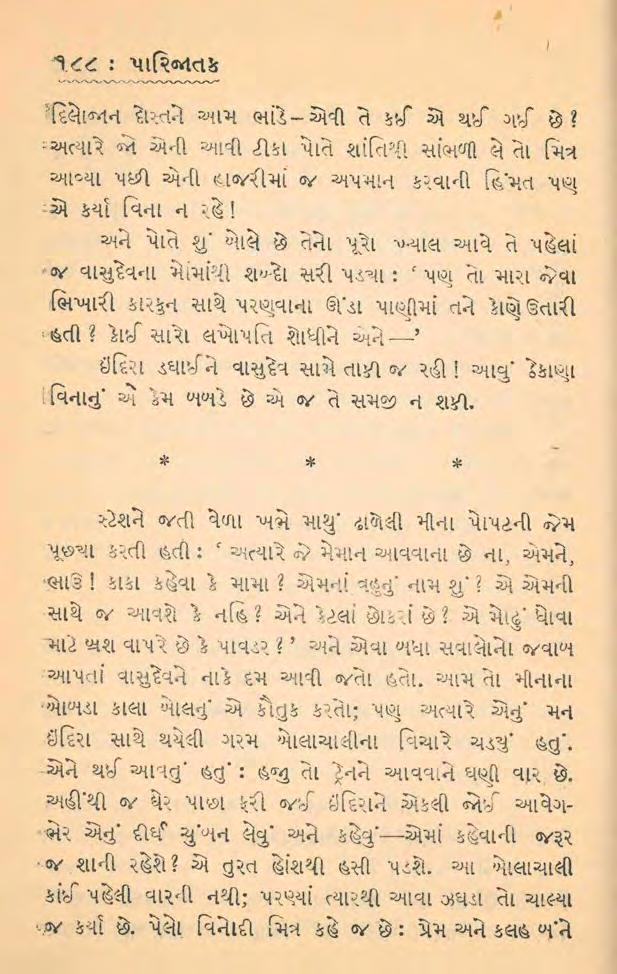 ૧૮૮ : પારિજાતક
દિલોજાન દોસ્તને આમ ભાંડે–એવી તે કઈ એ થઈ ગઈ છે?
અત્યારે જો એની આવી ટીકા પોતે શાંતિથી સાંભળી લે તો મિત્ર
આવ્યા પછી એની હાજરીમાં જ અપમાન કરવાની હિંમત પણ
એ કર્યા વિના ન રહે!
અને પોતે શું બોલે છે તેનો પૂરો ખ્યાલ આવે તે પહેલાં
જ વાસુદેવના મોંમાંથી શબ્દો સરી પડ્યા : ‘ પણ તો મારા જેવા
ભિખારી કારકુન સાથે પરણવાના ઊંડા પાણીમાં તને કોણે ઉતારી
હતી ? કોઈ સારો લખોપતિ શોધીને અને —’
ઇંદિરા ડઘાઈને વાસુદેવ સામે તાકી જ રહી ! આવું ઠેકાણા
વિનાનું એ કેમ બબડે છે એ જ તે સમજી ન શકી.
* * *
સ્ટેશને જતી વેળા ખભે માથું ઢાળેલી મીના પોપટની જેમ
પૂછ્યા કરતી હતી : ‘ અત્યારે જે મેમાન આવવાના છે ના, એમને,
ભાઉ ! કાકા કહેવા કે મામા ? એમનાં વહુનું નામ શું ? એ એમની
સાથે જ આવશે કે નહિ ? એને કેટલાં છોકરાં છે ? એ મોઢું ધોવા
માટે બ્રશ વાપરે છે કે પાવડર ? ’ અને એવા બધા સવાલોનો જવાબ
આપતાં વાસુદેવને નાકે દમ આવી જતો હતો. આમ તો મીનાના
બોબડા કાલા બોલનું એ કૌતુક કરતો; પણ અત્યારે એનું મન
ઇંદિરા સાથે થયેલી ગરમ બોલાચાલીના વિચારે ચડ્યું હતું.
એને થઈ આવતું હતું : હજુ તો ટ્રેનને આવવાને ઘણી વાર છે.
અહીંથી જ ઘેર પાછા ફરી જઈ ઇંદિરાને એકલી જોઈ આવેગ-
ભેર એનું દીર્ઘ ચુંબન લેવું અને કહેવું—એમાં કહેવાની જરૂર
જ શાની રહેશે ? એ તુરત હોંશથી હસી પડશે. આ બોલાચાલી
કાંઈ પહેલી વારની નથી; પરણ્યાં ત્યારથી આવા ઝઘડા તો ચાલ્યા
જ કર્યા છે. પેલો વિનોદી મિત્ર કહે જ છે : પ્રેમ અને કલહ બંને